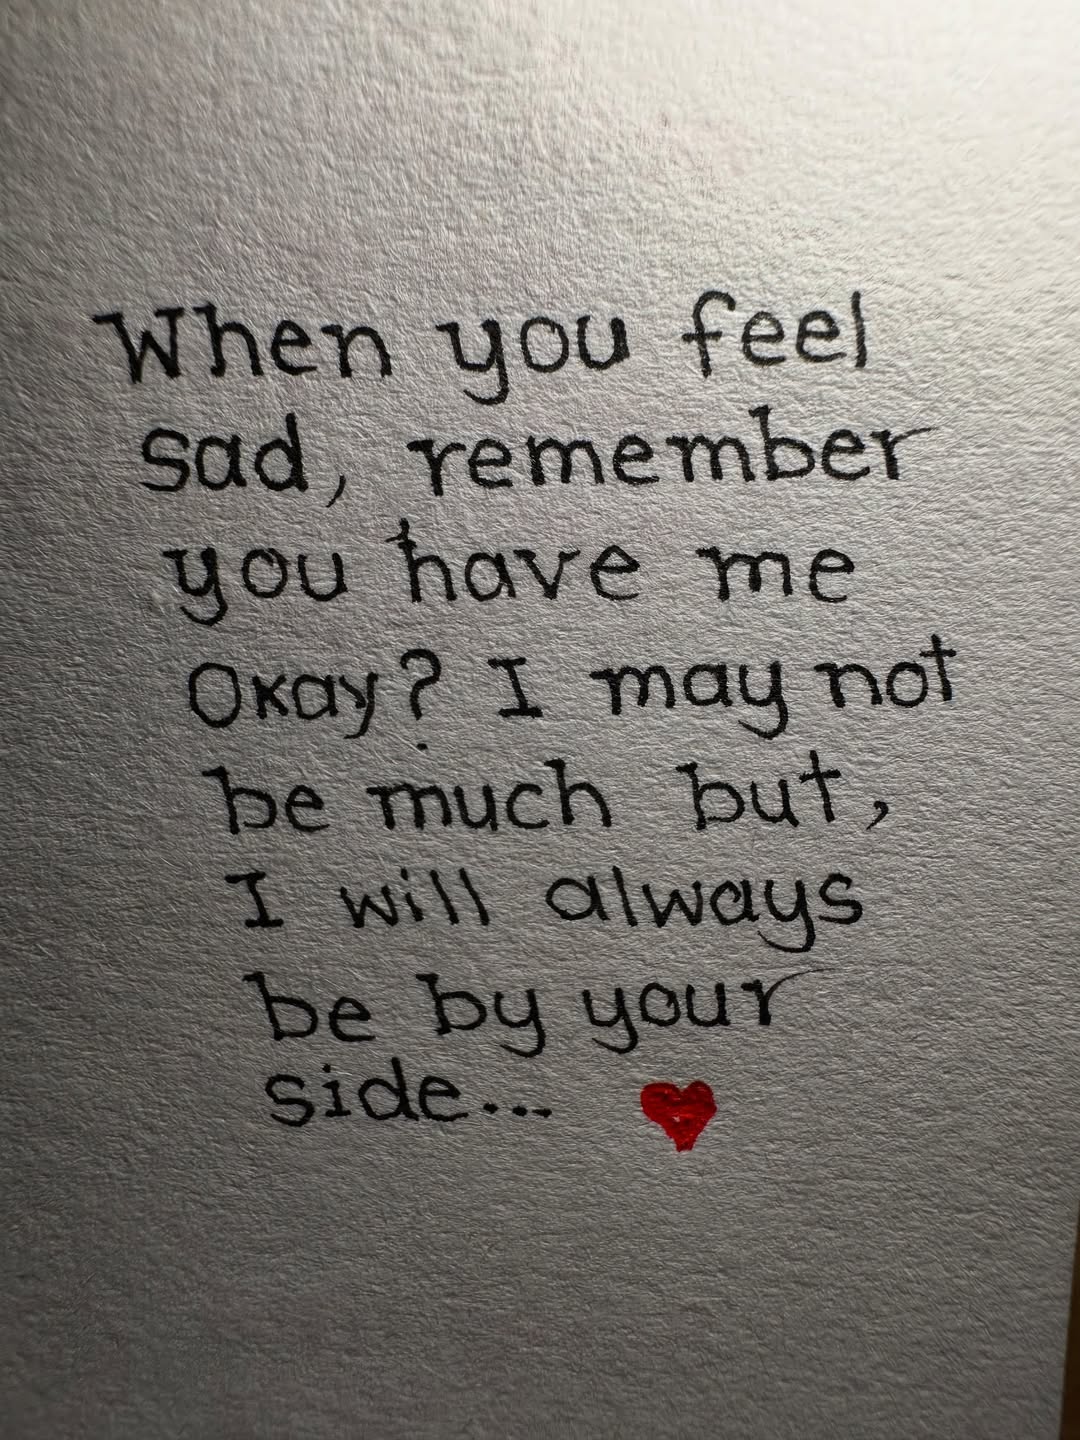 When you feel
sad, remember
you have me
Okay? I may not
be much but,
I will always
be by your
side... ❤